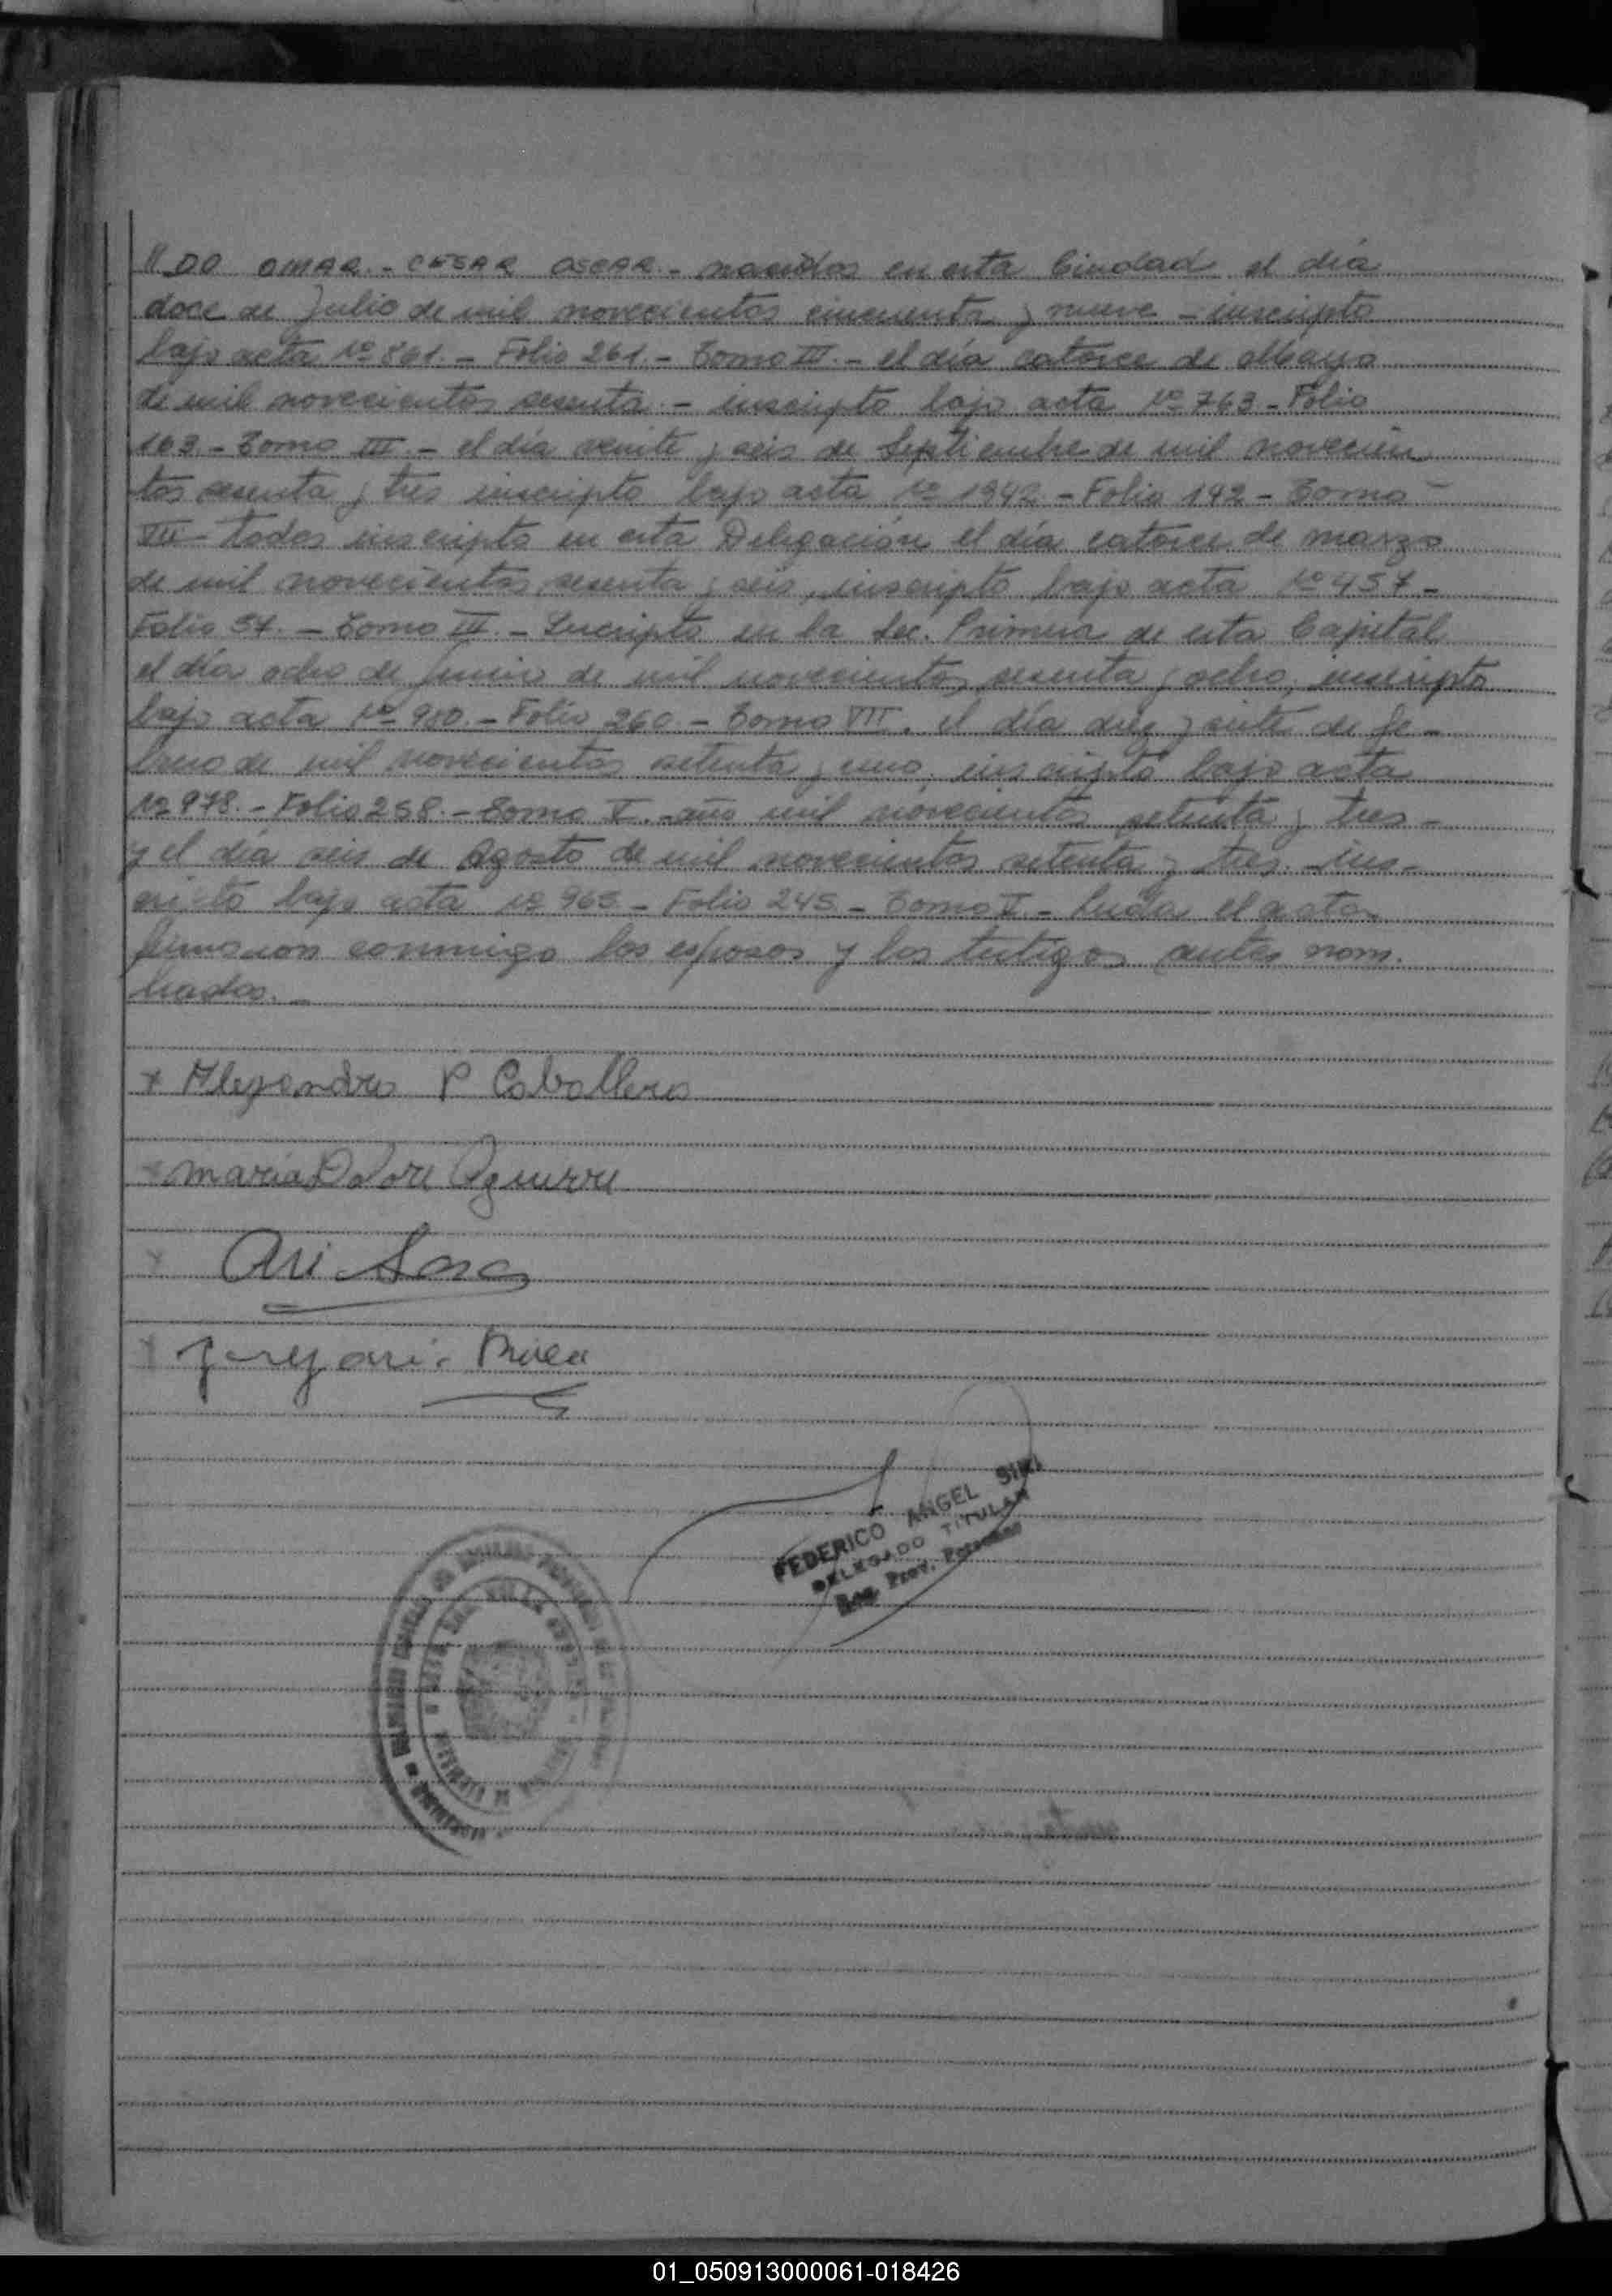 // DO OMAR.- CESAR OSCAR.- nacidos en esta Ciudad el día
doce de Julio de mil novecientos cincuenta y nueve - inscripto
bajo acta Nº 861.- Folio 261.- Tomo III.- el día catorce de Mayo
de mil novecientos sesenta.- inscripto bajo acta Nº 763 - Folio
163.- Tomo III.- el día veinte y seis de Septiembre de mil novecien
tos sesenta y tres inscripto bajo acta Nº 1942 - Folio 192 - Tomo
VII - todos inscripto en esta Delegación el día catorce de marzo
de mil novecientos sesenta y seis, inscripto bajo acta Nº 457 -
Folio 57.- Tomo III.- Inscripto en la Sec. Primera de esta Capital
el día ocho de Junio de mil novecientos sesenta y ocho, inscripto
bajo acta Nº 980.- Folio 260.- Tomo VIII. el día diez y siete de fe-
brero de mil novecientos setenta y uno, inscripto bajo acta
Nº 978.- Folio 258.- Tomo V.- año mil novecientos setenta y tres -
y el día seis de Agosto de mil novecientos setenta y tres.- ins-
cripto bajo acta Nº 965 - Folio 245 - Tomo V.- Leída el acta
firmaron conmigo los esposos y los testigos antes nom.
brados.-
x Alejandro P Caballero
x maria Dolore Aguirre
x Ari Sosa
x
FEDERICO ANGEL SIRI
DELEGADO TITULAR
Reg. Prov. Personas